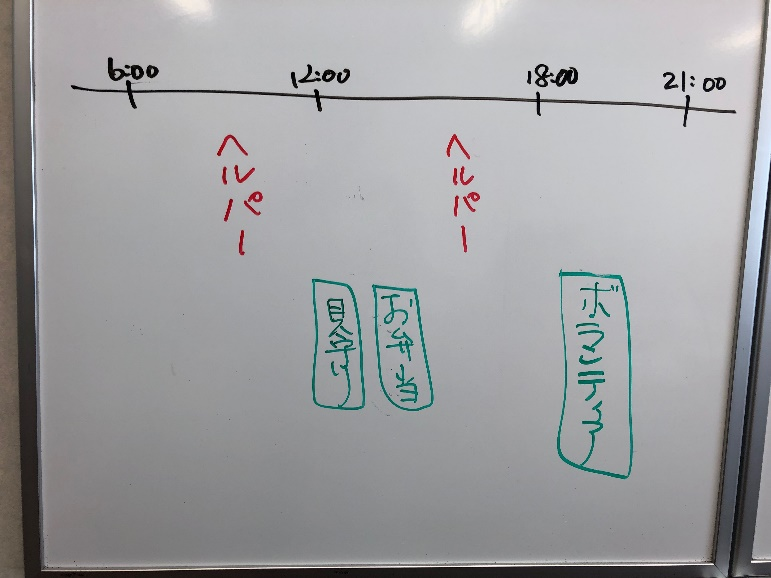 6:00
12:00
18:00
21:00
ヘルパー
ヘルパー
見守り
お弁当
ボランティア